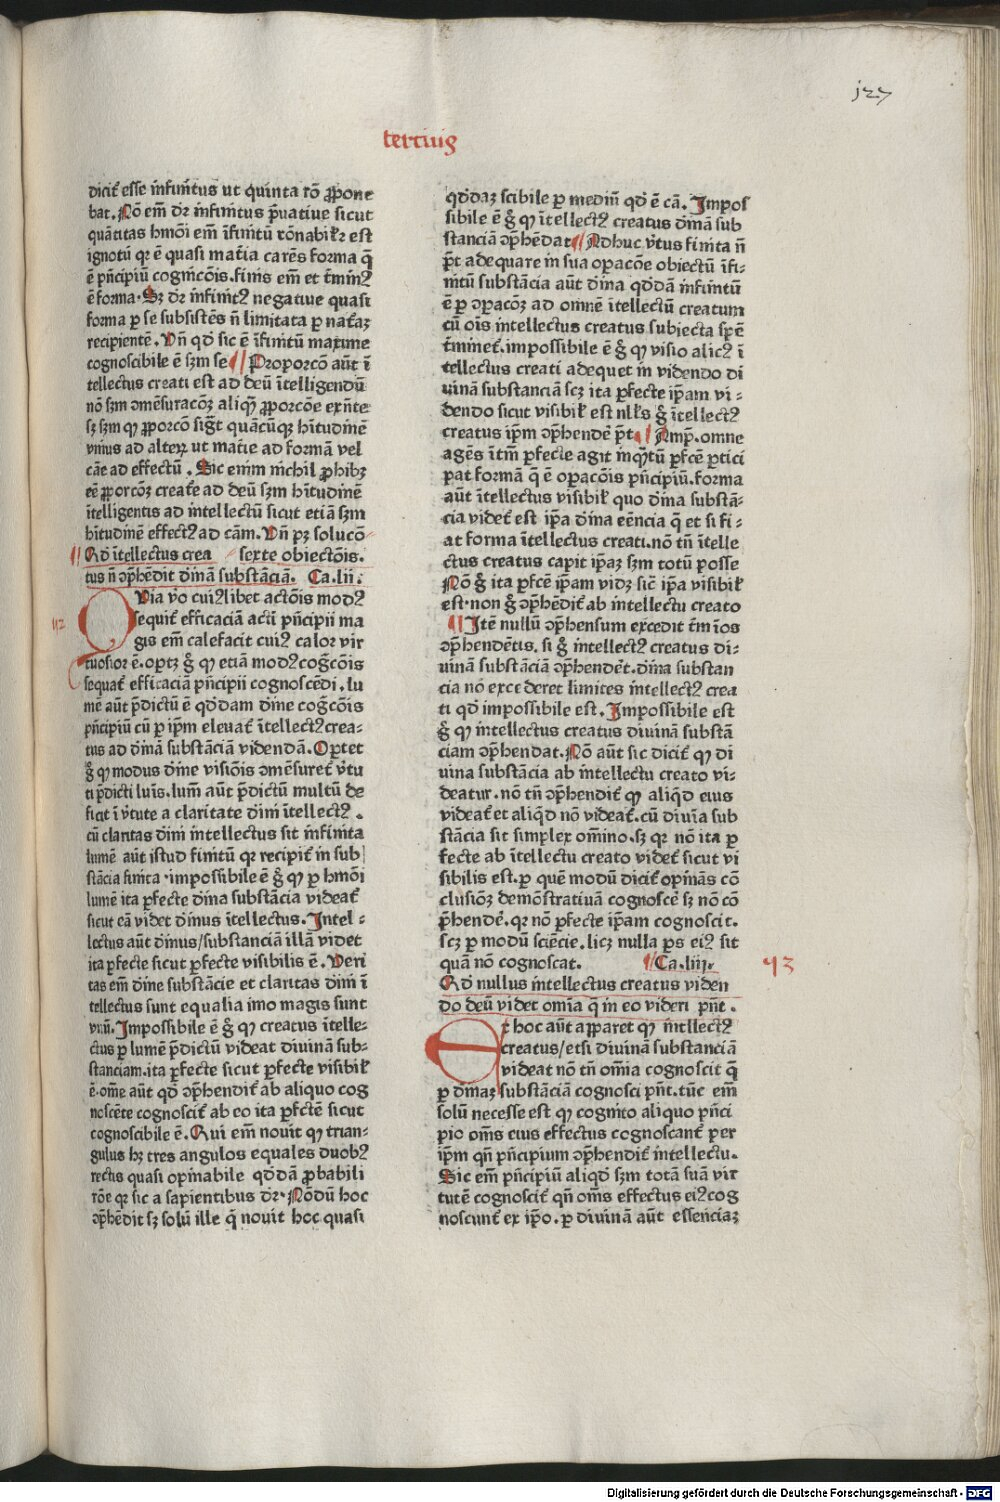 j27
tercius
dicit̄ esse īnfinitus ut quinta rō ꝓpone
bat. Nō em̄ dr̄ infinitus p̄uatiue sicut
quātitas hmōi em̄ īfinitū rōnabilr̄ est
ignotū qr̄ ē quasi mat̄ia carēs forma q̄
ē pn̄cipiū cognicōis. finis em̄ et t̄minꝰ
ē forma. Sꝫ dr̄ infinitꝰ negatiue quasi
forma ꝑ se subsistēs n̄ limitata ꝑ nat̄aꝫ
recipientē. Vn̄ qd̄ sic ē īfinitū maxime
cognoscibile ē sꝫm se Proporcō aūt ī
tellectus creati est ad deū ītelligendū
nō sꝫm ꝯmēsuracōꝫ aliqꝫ ꝓporcōe exn̄te
sꝫ sꝫm qꝫ ꝓporcō sigt̄ quācūqꝫ hītudinē
vnius ad alteꝝ ut mat̄ie ad formā vel
cāe ad effectū. Sic enim nichil ꝓhibꝫ
eē ꝓporcōꝫ creat̄e ad deū sꝫm hītudinē
ītelligentis ad intellectū sicut etiā sꝫm
hītudinē effectꝰ ad cām. Vn̄ pꝫ solucō
sexte obiectōis.
Qd̄ ītellectus crea
tus n̄ ꝯp̄hēdit dīnā substāciam. Ca.lii.
QVia v̄o cuiꝰlibet actōis modꝰ
sequit̄ efficaciā actī pn̄cipii ma
gis em̄ calefacit cuiꝰ calor vir
tuosior ē. optꝫ ḡ qꝫ etiā modꝰ coḡcōis
sequat̄ efficaciā pn̄cipii cognoscēdi. lu
mē aūt p̄dictū ē qd̄dam dīne coḡcōis
pn̄cipiū cū ꝑ ip̄m eleuat̄ ītellectꝰ crea-
tus ad dīnā substāciā videndā. Optet
ḡ qꝫ modus dīne visiōis ꝯmēsuret̄ v̄tu
ti p̄dicti luīs. lum̄ aūt p̄dictū multū de
ficit ī v̄tute a claritate dīni ītellectꝰ.
cū claritas dīni intellectus sit infinita
lumē aūt istud finitū qr̄ recipit̄ in sub
stācia finita. impossibile ē ḡ qꝫ ꝑ hmōi
lumē ita ꝑfecte dīna substācia videat̄
sicut eā videt dīnus ītellectus. Intel-
lectus aūt dīnus/substanciā illā videt
ita ꝑfecte sicut ꝑfecte visibilis ē. Veri
tas em̄ dīne substācie et claritas dīni ī
tellectus sunt equalia imo magis sunt
vnū. Impossibile ē ḡ qꝫ creatus ītelle-
ctus ꝑ lumē p̄dictū videat diuinā sub-
stanciam. ita ꝑfecte sicut ꝑfecte visibil̄
ē. om̄e aūt qd̄ ꝯp̄hēdit̄ ab aliquo cog
noscēte cognoscit̄ ab eo ita ꝑfctē sicut
cognoscibile ē. Qui em̄ nouit qꝫ trian-
gulus hꝫ tres angulos equales duobꝰ
rectis quasi opinabile qd̄dā ꝓbabili
rōe qr̄ sic a sapientibus dr̄. Nōdū hoc
ꝯp̄hēdit sꝫ solū ille q̄ nouit hoc quasi
qd̄daꝫ scibile ꝑ mediū qd̄ ē cā. Impos
sibile ē ḡ qꝫ ītellectꝰ creatus dīnā sub
stanciā ꝯp̄hēdat Adhuc v̄tus finita n̄
p̄t adequare in sua oꝑacōe obiectū īfi-
nitū substācia aūt dīna qd̄dā infinitū
ē ꝑ ꝯꝑacōꝫ ad omnē ītellectū creatum
cū oīs intellectus creatus sub certa spē
t̄minet̄. impossibile ē ḡ qꝫ visio alicꝰ ī
tellectus creati adequet in videndo di
uinā substanciā scꝫ ita ꝑfecte ip̄am vi-
dendo sicut visibil̄ est nll̄s ḡ ītellectꝰ
creatus ip̄m ꝯp̄hendē p̄t Amp̄. omne
agēs īt̄m ꝑfecte agit inq̄tū ꝑfcē ꝑtici
pat formā q̄ ē oꝑacōis pn̄cipiū. forma
aūt ītellectus visibil̄ quo dīna substā-
cia videt̄ est ip̄a dīna eēncia q̄ et si fi-
at forma ītellectus creati. nō tn̄ ītelle
ctus creatus capit ip̄aꝫ sꝫm totū posse
Nō ḡ ita ꝑfcē ip̄am vidꝫ sic̄ ip̄a visibil̄
est. non ḡ ꝯp̄hēdit̄ ab intellectu creato
Itē nullū ꝯp̄hensum excedit t̄mīos
ꝯp̄hendētis. si ḡ ītellectꝰ creatus di-
uinā substāciā ꝯp̄hendēt. dīna substan
cia nō excederet limites intellectꝰ crea
ti qd̄ impossibile est. Impossibile est
ḡ qꝫ intellectus creatus diuinā substā
ciam ꝯp̄hendat. Nō aūt sic dicit̄ qꝫ di
uina substācia ab intellectu creato vi-
deatur. nō tn̄ ꝯp̄hendit̄ qꝫ aliq̄d eius
videat̄ et aliq̄d nō videat̄. cū diuīa sub
stācia sit simplex om̄ino. sꝫ qr̄ nō ita ꝑ
fecte ab ītellectu creato videt̄ sicut vi
sibilis est. ꝑ quē modū dicit̄ opinās cō
clusiōꝫ demōstratiuā cognoscē sꝫ nō cō
p̄hendē. qr̄ nō ꝑfecte ip̄am cognoscit.
scꝫ ꝑ modū sciēcie. licꝫ nulla ꝑs eiꝰ sit
quā nō cognoscat. Ca.liii.
Qd̄ nullus intellectus creatus viden
do deū videt omīa q̄ in eo videri pn̄t.
EX hoc aūt apparet qꝫ intllectꝰ
creatus/etsi diuinā substanciā
videat nō tn̄ om̄ia cognoscit q̄
ꝑ dīnaꝫ substāciā cognosci pn̄t. tūc em̄
solū necesse est qꝫ cognito aliquo pn̄ci
pio om̄s eius effectus cognoscant̄ per
ip̄m qn̄ pn̄cipium ꝯp̄hendit̄ intellectu.
Sic em̄ pn̄cipiū aliqd̄ sꝫm totā suā vir
tutē cognoscit̄ qn̄ om̄s effectus eiꝰ cog
noscunt̄ ex ip̄o. ꝑ diuinā aūt essenciaꝫ
42
43
Digitalisierung gefördert durch die Deutsche Forschungsgemeinschaft - DFG